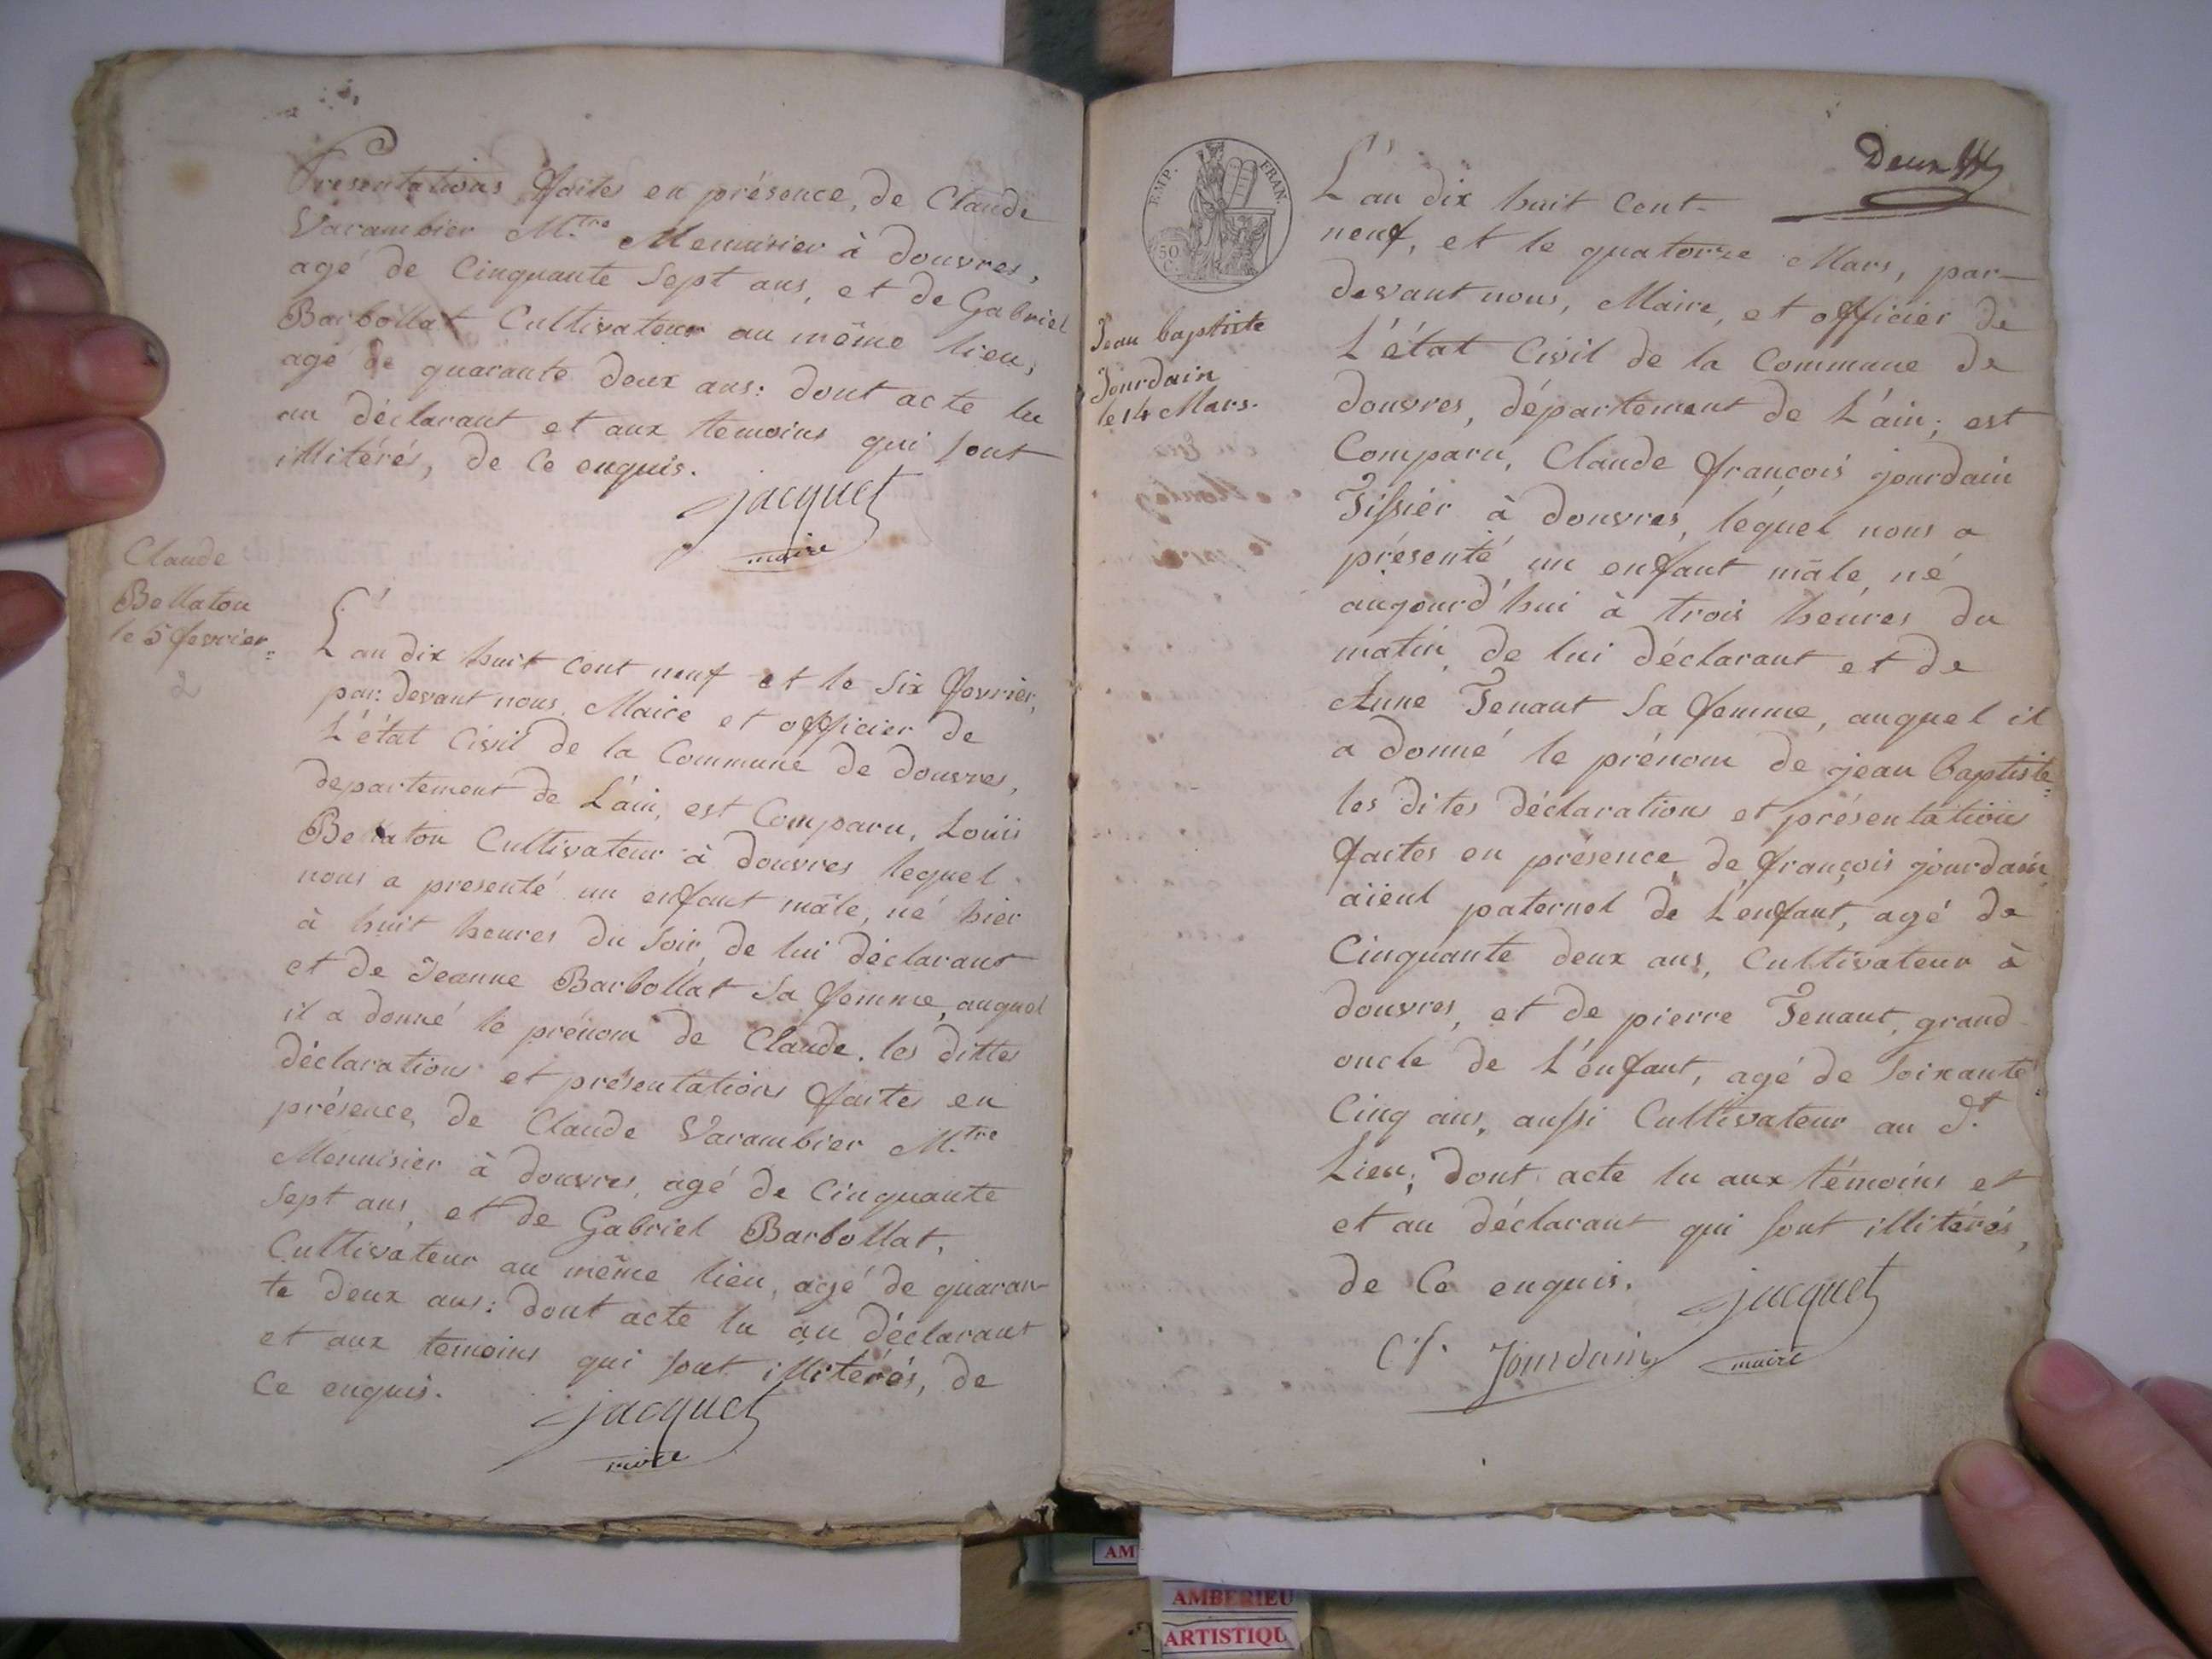 Presentations faites en présence, de Claude
Varambier M.tre Menuisier à douvres,
agé de Cinquante Sept ans, et de Gabriel
Barbollat Cultivateur au même lieu,
agé de quarante deux ans: dont acte lu
au déclarant et aux temoins qui sont
illitérés, de Ce enquis.
jacquet
maire
Claude
Bellaton
le 5 fevrier
2
L'an dix huit cent neuf et le Six fevrier,
par devant nous, Maire et officier de
L'état Civil de la Commune de douvres,
departement de L'ain, est Comparu, Louis
Bellaton Cultivateur à douvres lequel
nous a presenté un enfant mâle, né hier
à huit heures du Soir, de lui déclarant
et de Jeanne Barbollat Sa femme, auquel
il a donné le prénom de Claude. les dittes
déclarations et présentations faites en
présence, de Claude Varambier M.tre
Menuisier à douvres, agé de Cinquante
Sept ans, et de Gabriel Barbollat,
Cultivateur au même lieu, agé de quaran-
te deux ans: dont acte lu au déclarant
et aux temoins qui sont illitérés, de
Ce enquis.
jacquet
maire
EMP. FRAN.
50 C.
Deux
Jean baptiste
Jourdain
le 14 Mars.
L'an dix huit Cent-
neuf, et le quatorze Mars, par-
devant nous, Maire, et officier de
L'état Civil de la Commune de
douvres, département de L'ain; est
Comparu, Claude françois jourdain
Tissier à douvres, lequel nous a
présenté un enfant mâle, né
aujourd'hui à trois heures du
matin, de lui déclarant et de
Anne Tenant Sa femme, auquel il
a donné le prénom de jean baptiste
les dites déclarations et présentations
faites en présence, de françois jourdain
aieul paternel de L'enfant, agé de
Cinquante deux ans, Cultivateur à
douvres, et de pierre Tenant, grand
oncle de L'enfant, agé de Soixante
Cinq ans, aussi Cultivateur au d.t
Lieu; dont acte lu aux témoins et
et au déclarant qui sont illitérés,
de Ce enquis.
jacquet
maire
Cf. Jourdain
AM
AMBERIEU
ARTISTIQU